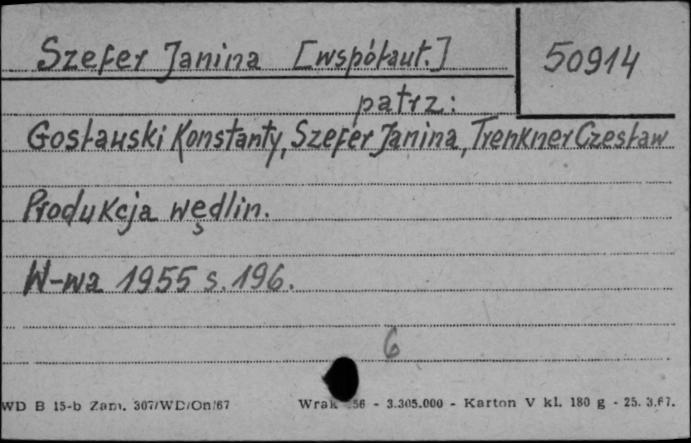 Szefer Janina [współaut.] 50914
patrz:
Gosławski Konstanty, Szefer Janina, Trenkner Czesław
Produkcja wędlin.
W-wa 1955 s. 196.
6
WD B 15-b Zam. 307/WD/On/67 56 - 3.305.000 - Karton V kl. 180 g - 25. 3.67.